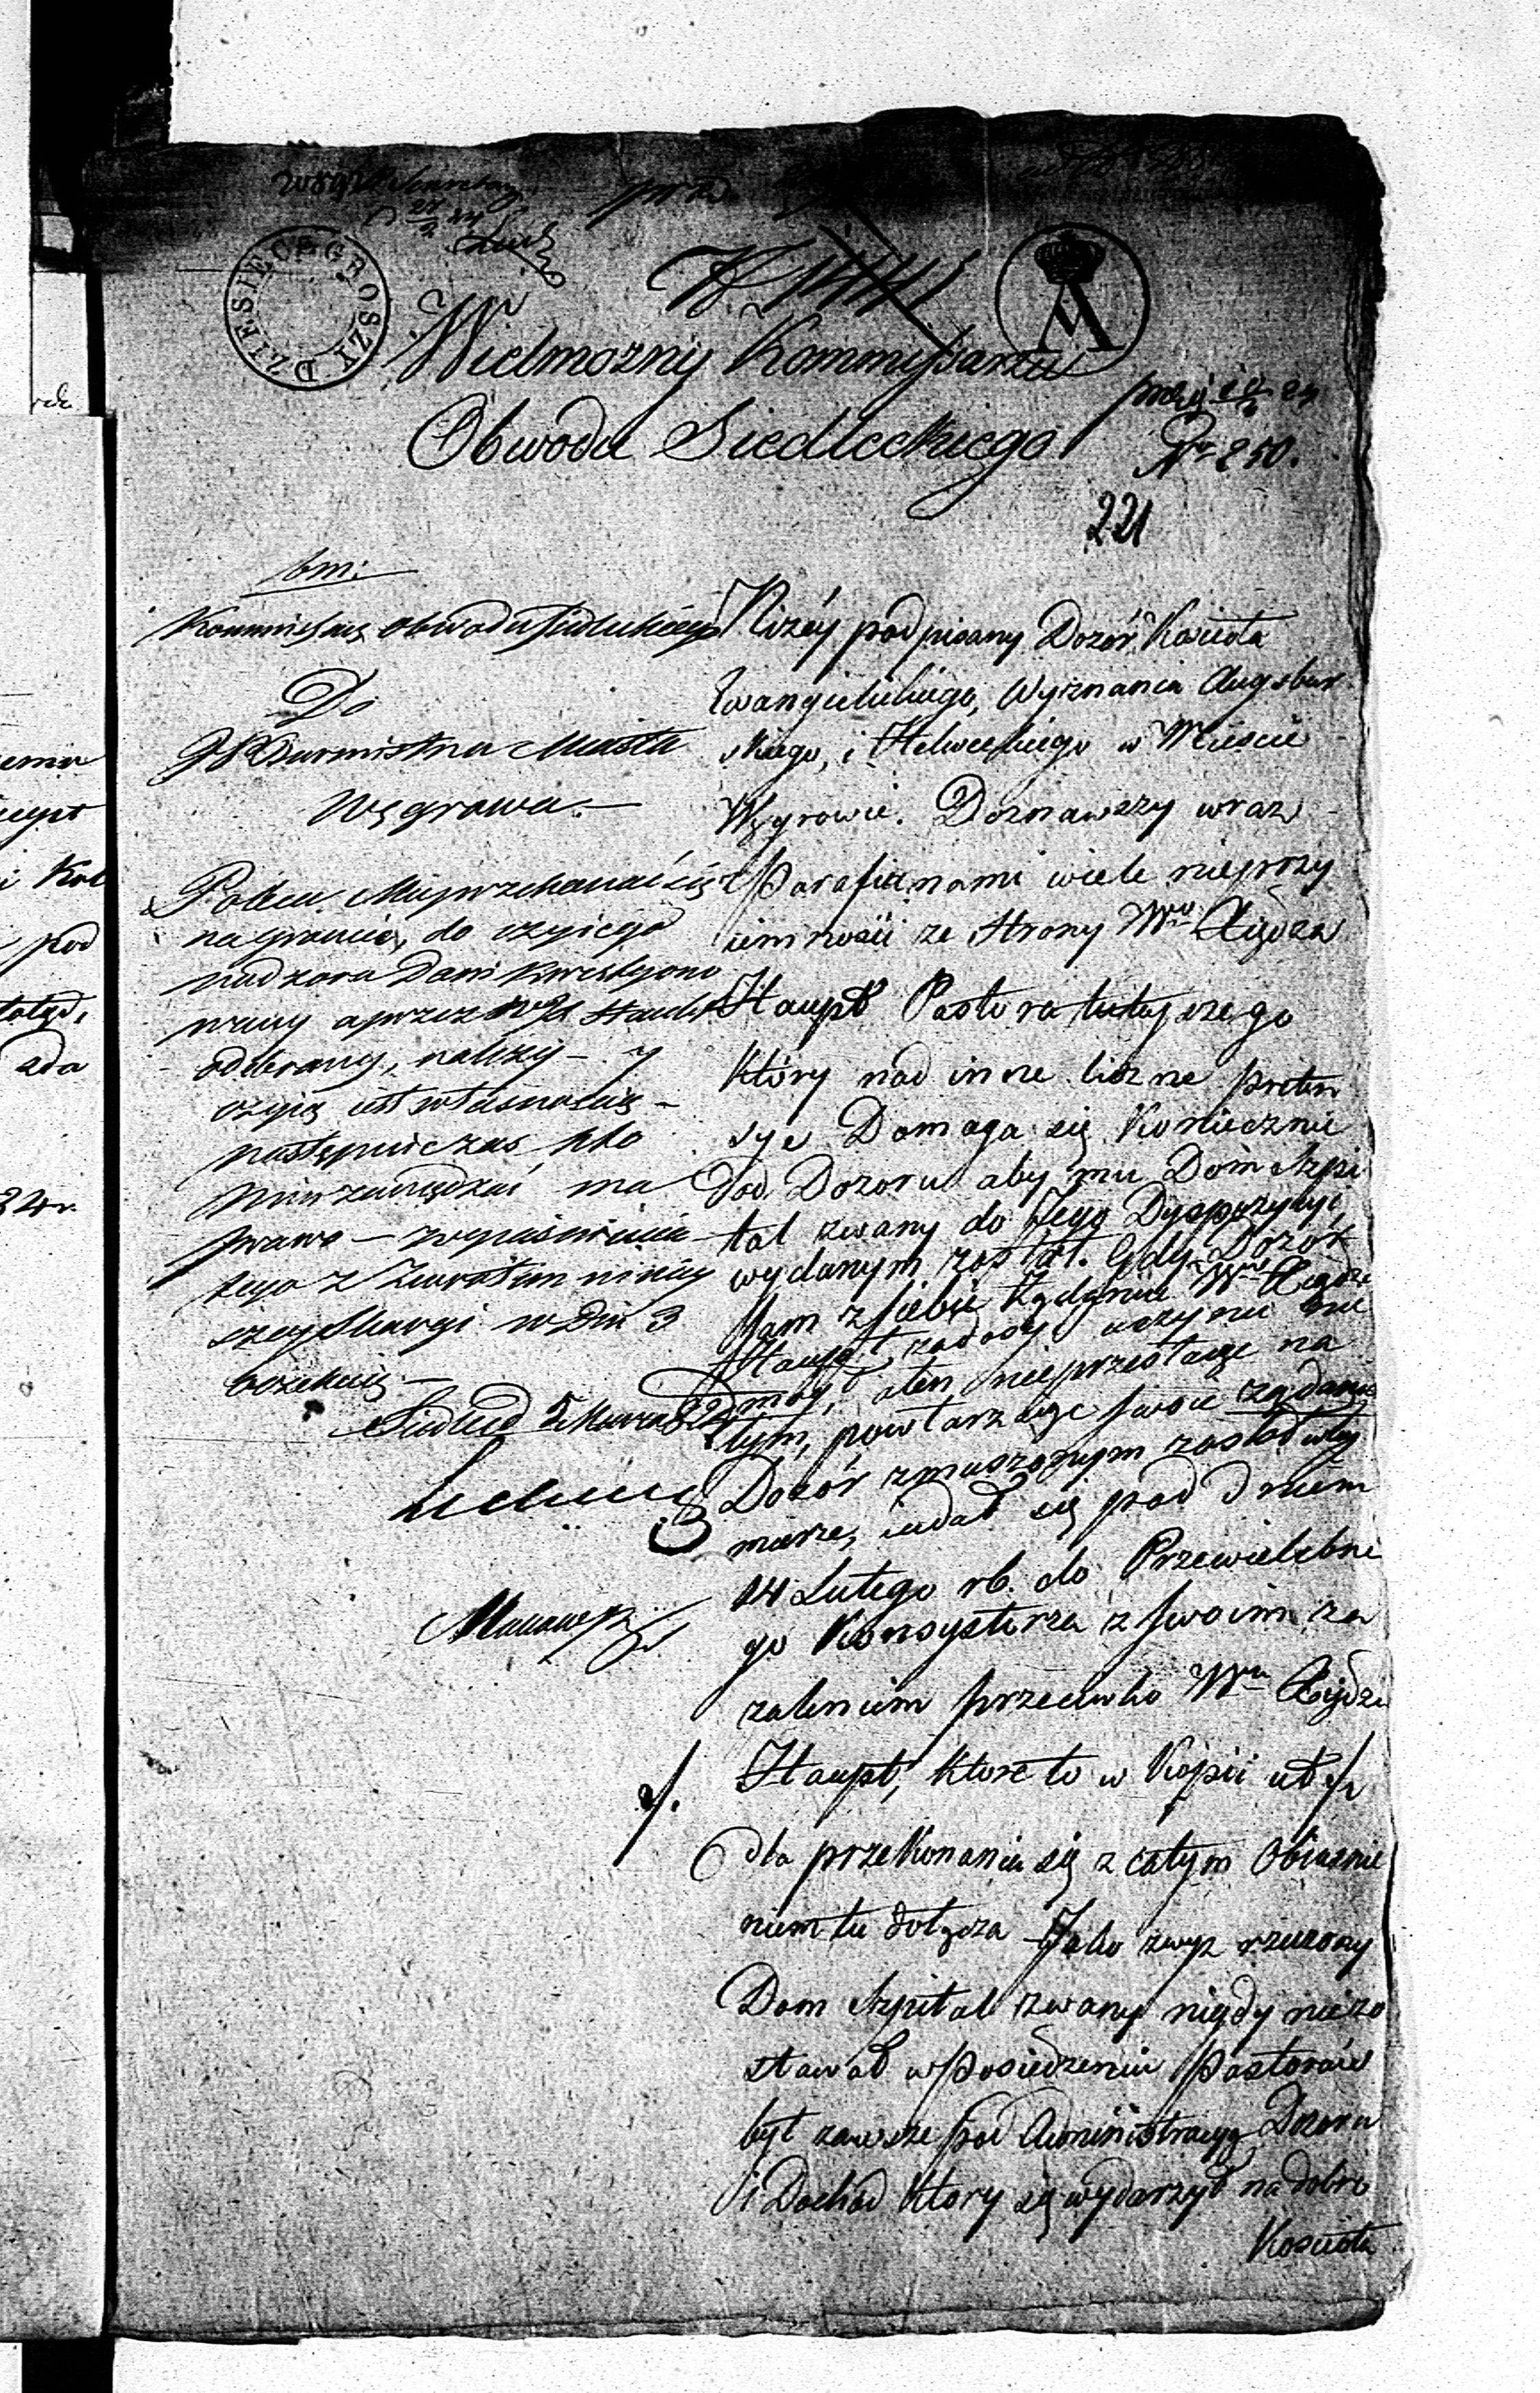 DZIESIĘĆ GROSZY
Wielmozny Kommissarzu
Obwodu Siedleckiego
No 250.
221
bm:
Kommissarz Obwodu Siedleckiego
Do
Burmistrza Miasta
Węgrowa.
Polecam
na gruncie, do czyiego
nadzoru Dom kwestyono
wany a przez
odebrany, należy – y
czyią iest własnością –
następnie czas kto
nim zarządzać ma
prawo – wyiaśnienia
tego z Zwrotem niniey
szey Skargi w Dni 3
oczekuię. –
Siedlce 5 Marca 824
Niżey podpisany Dozór Kościoła
Ewangielickiego, Wyznania Augsbur
skiego, i Helweckiego w Mieście
Węgrowie. Doznawszy wraz
z Parafianami wiele nieprzy
iemności ze strony Wo Xiędza
Haupt Pastora tutayszego
który nad inne liczne preten
sye Domaga się Koniecznie
od Dozoru aby mu Dom Szpi
tal zwany do Jego Dyspozycyi
wydanym został. Gdy Dozór
sam z siebie Żądaniu Wo Xiędza
Haupt zadosyć uczynić nie
mógł, a ten nieprzestaiąc na
tym, powtarzaiąc swoie żądanie
Dozór zmuszonym został w tey
mierze, udał się pod dniem
14 Lutego rb. do Przewielebne
go Konsystorza z swoim za
żaleniem przeciwko Wu Xiędzu
Haupt, które to w Kopii
dla przekonania się z całym Obiaśnie
niem tu dołącza Jako zwyż rzeczony
Dom Szpital zwany nigdy niezo
stawał w Posiedzeniu Pastorów
był zawsze pod Administracyą Dozoru
i Dochód który się wydarzył na dobro
Kościoła